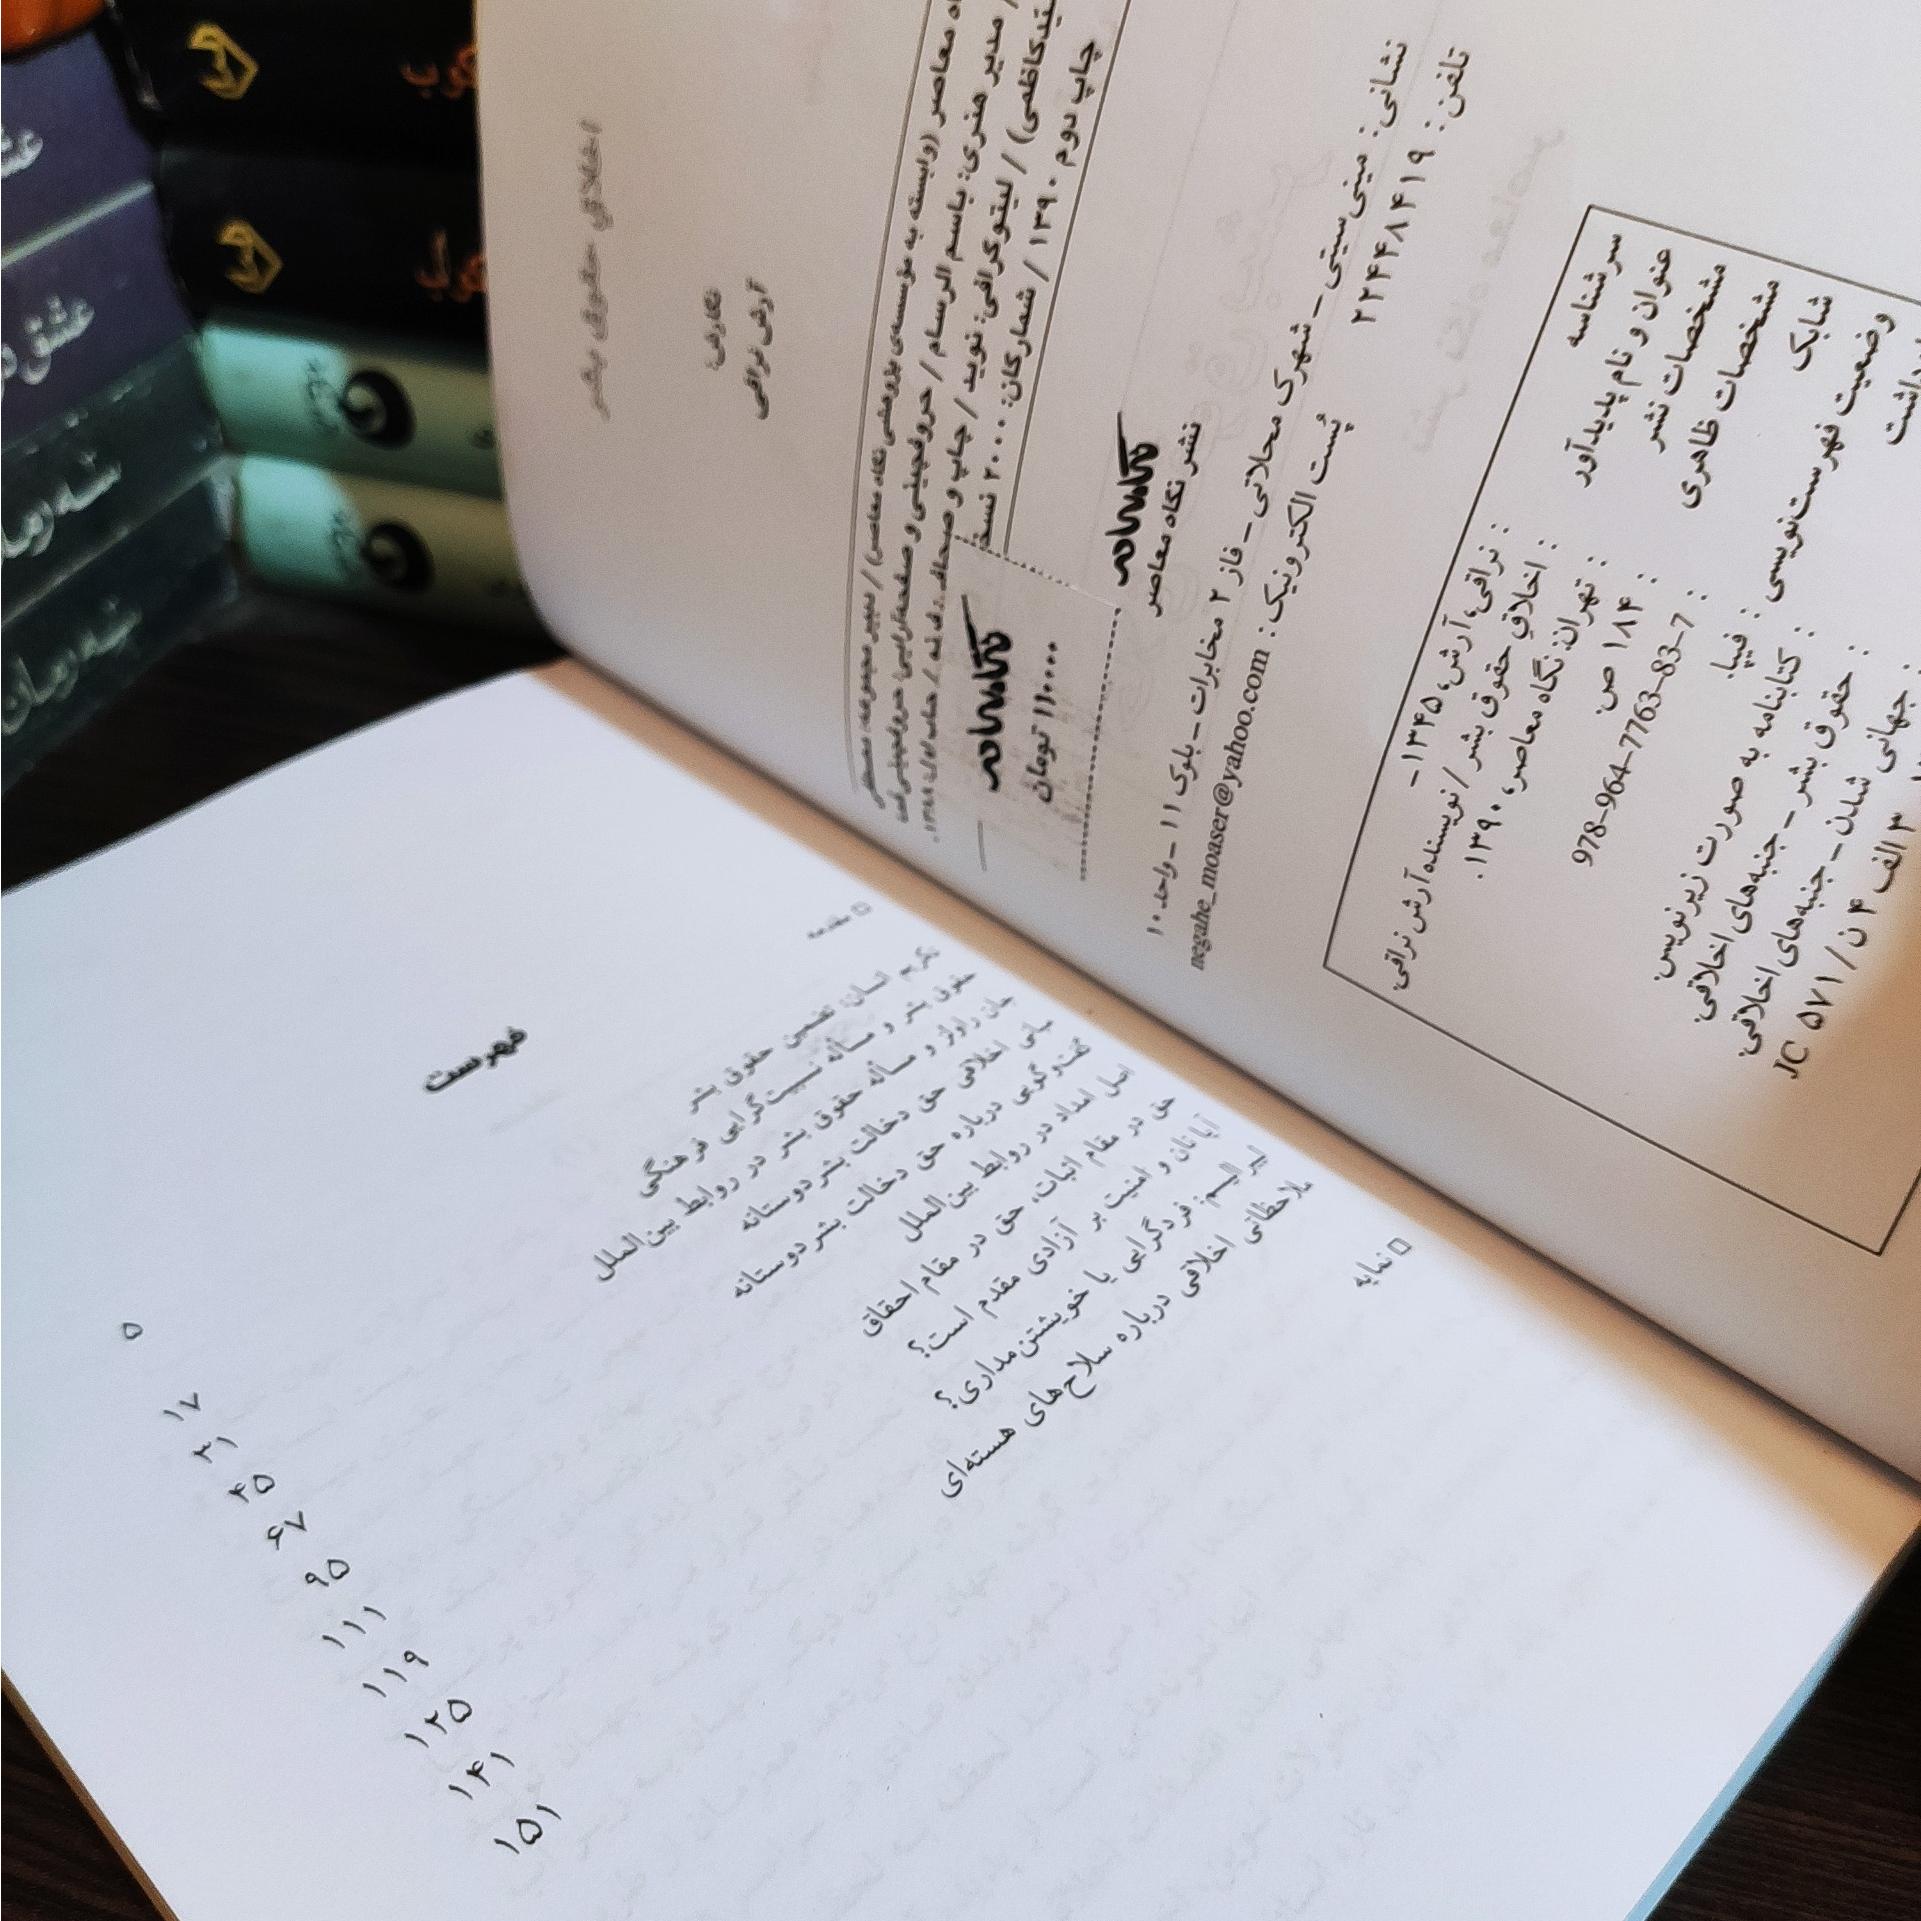 اخلاقِ حقوق بشر
نگارش:
آرش نراقی
نگاه معاصر (وابسته به مؤسسه‌ی پژوهشی نگاه معاصر) / دبیر مجموعه: مصطفی
مدیر هنری: باسم الرسام / حروفچینی و صفحه‌آرایی: حروفچینی
سیدکاظمی) / لیتوگرافی: نوید / چاپ و صحافی: / چاپ اول: ۱۳۸۸.
چاپ دوم ۱۳۹۰ / شمارگان: ۲۰۰۰ نسخه
نگاه معاصر
۱۱۰۰۰۰ تومان
نگاه معاصر
نشر نگاه معاصر
نشانی: مینی‌سیتی – شهرک محلاتی – فاز ۲ مخابرات – بلوک ۱۱ – واحد ۱۰
تلفن: ۲۲۴۴۸۴۱۹
پُست الکترونیک: negahe_moaser@yahoo.com
سرشناسه : نراقی، آرش، ۱۳۴۵-
عنوان و نام پدیدآور : اخلاقِ حقوق بشر / نویسنده آرش نراقی.
مشخصات نشر : تهران: نگاه معاصر، ۱۳۹۰.
مشخصات ظاهری : ۱۸۴ ص.
شابک : 978-964-7763-83-7
وضعیت فهرست‌نویسی : فیپا.
: کتابنامه به صورت زیرنویس.
: حقوق بشر – جنبه‌های اخلاقی.
: جهانی شدن – جنبه‌های اخلاقی.
۳ الف ۴ ن / ۵۷۱ JC
فهرست
□ مقدمه ۵
تکریم انسان، تضمین حقوق بشر ۱۷
حقوق بشر و مسأله نسبیت‌گرایی فرهنگی ۳۱
جان راولز و مسأله حقوق بشر در روابط بین‌الملل ۴۵
مبانی اخلاقی حق دخالت بشردوستانه ۶۷
گفت‌وگویی درباره حق دخالت بشردوستانه ۹۵
اصل امداد در روابط بین‌الملل ۱۱۱
حق در مقام اثبات، حق در مقام احقاق ۱۱۹
آیا نان و امنیت بر آزادی مقدم است؟ ۱۲۵
لیبرالیسم: فردگرایی یا خویشتن‌مداری؟ ۱۴۱
ملاحظاتی اخلاقی درباره سلاح‌های هسته‌ای ۱۵۱
□ نمایه